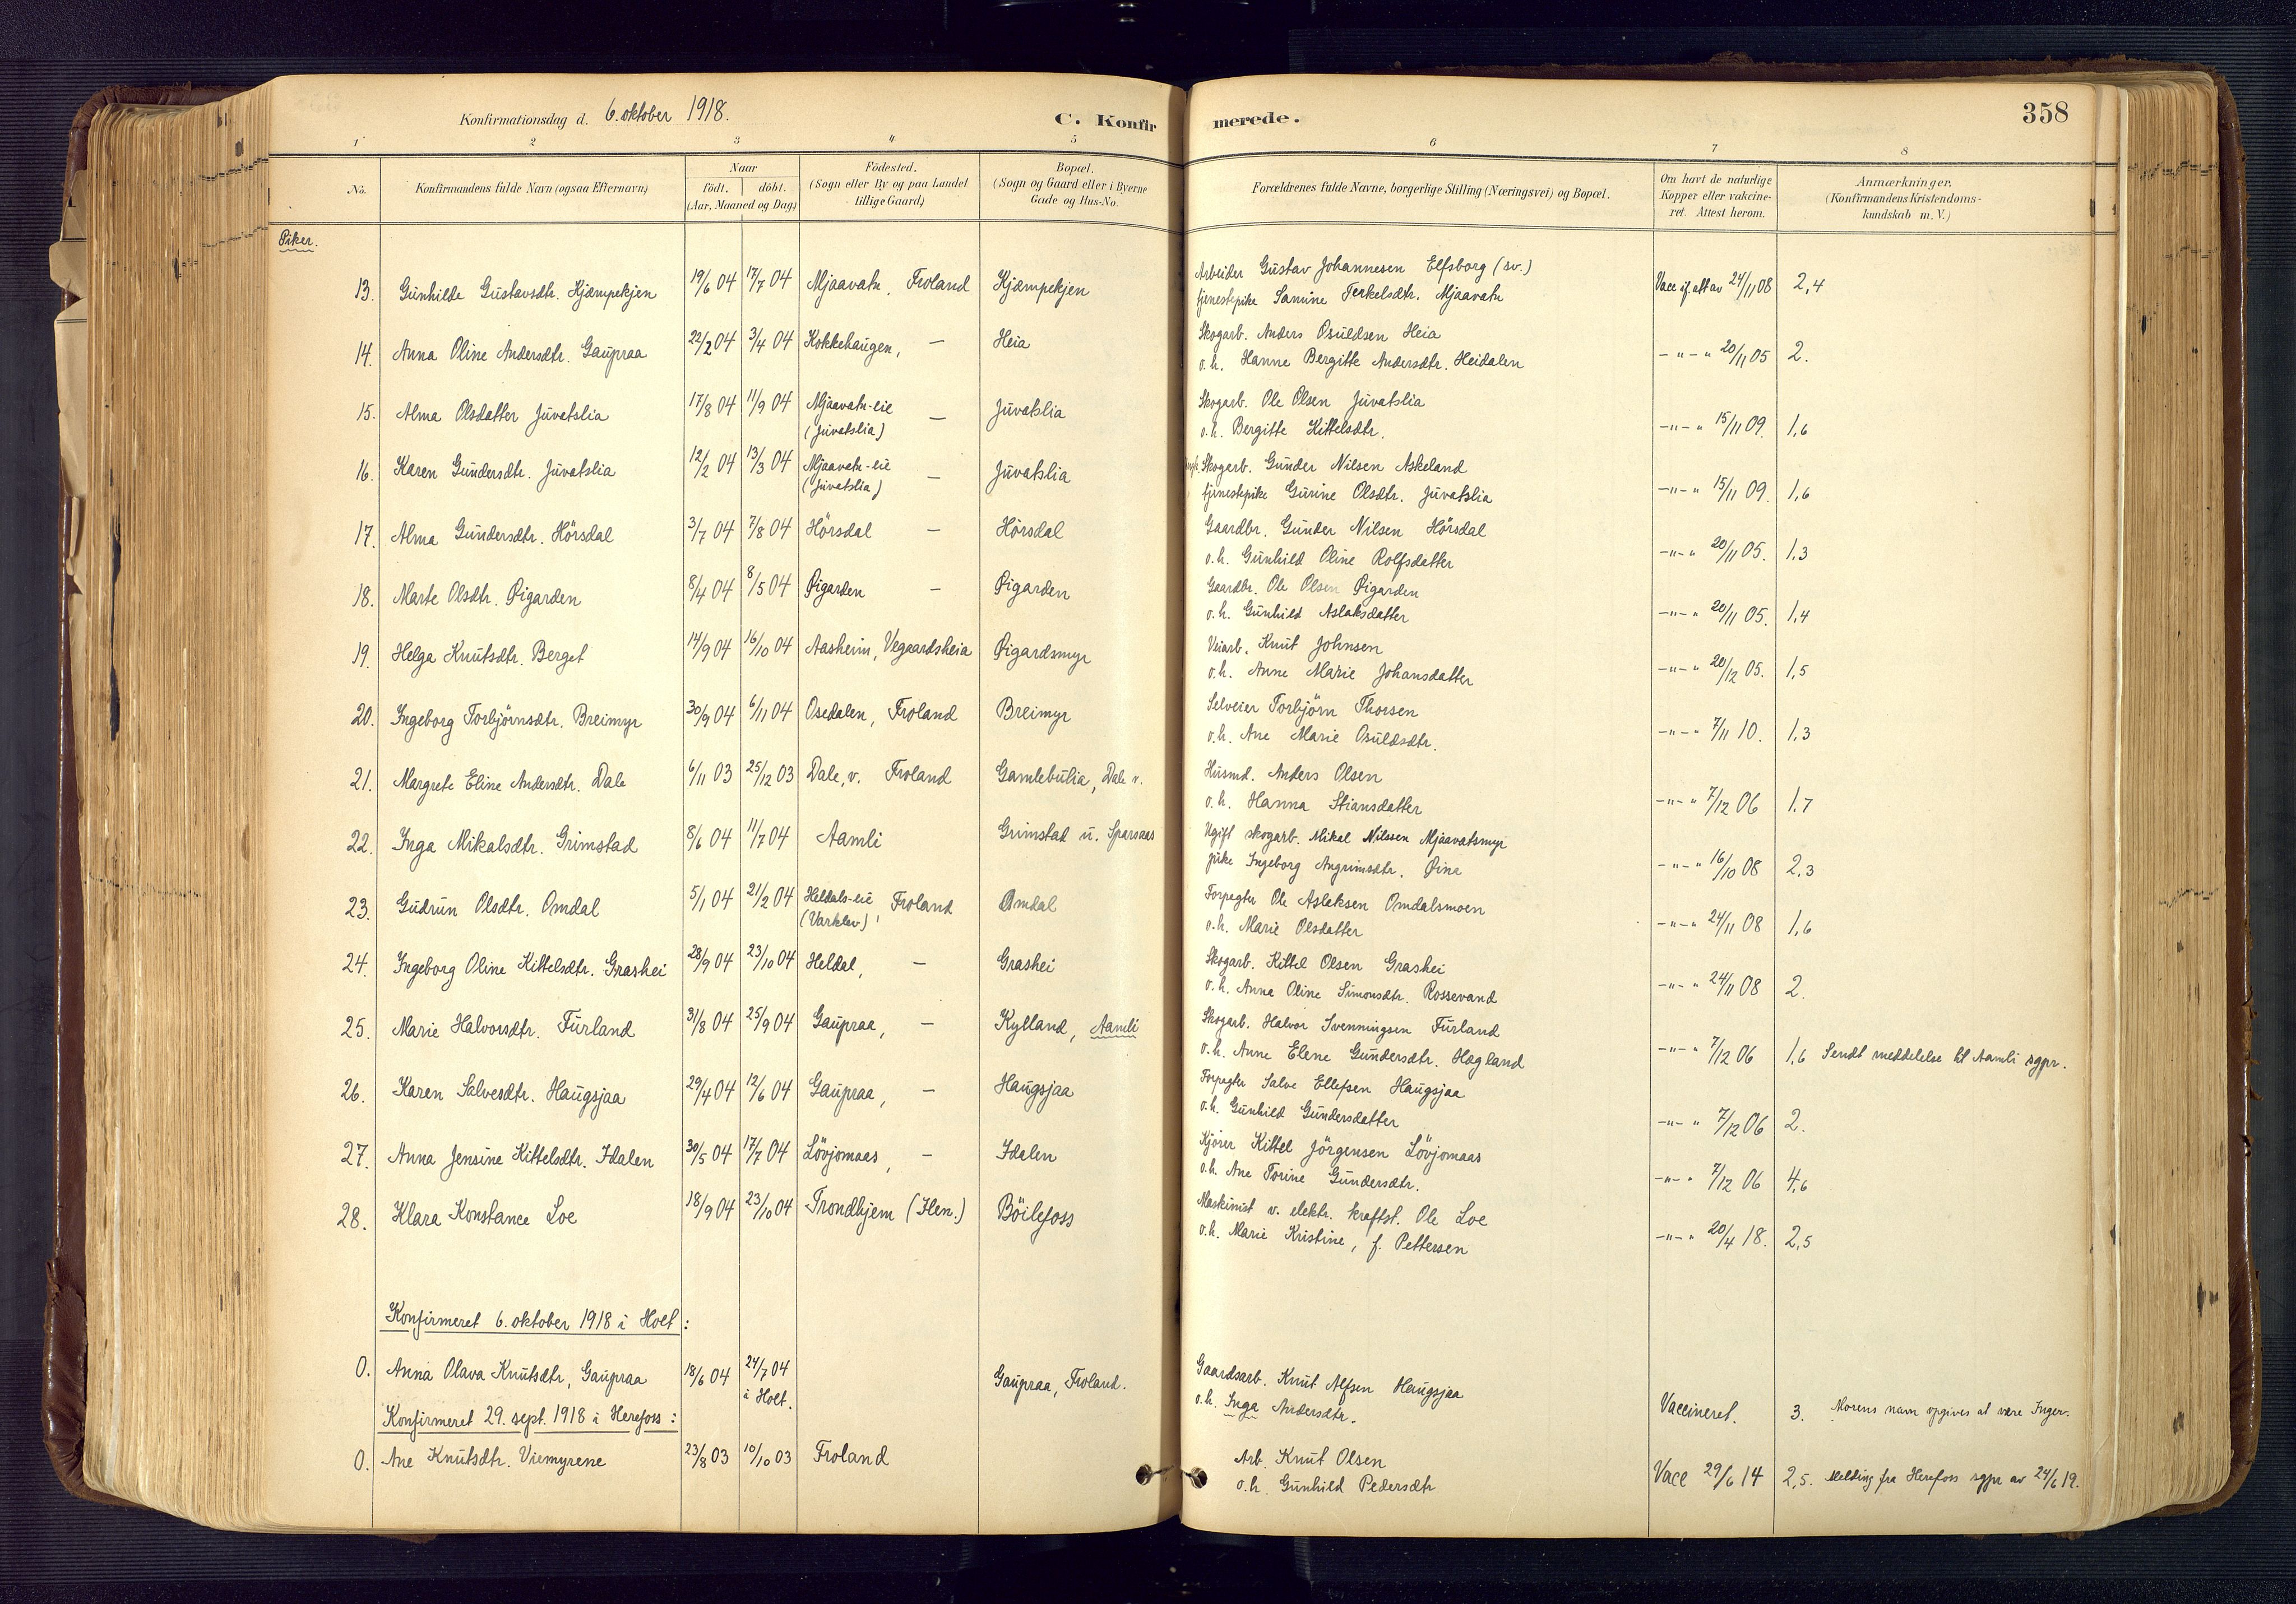 Konfirmationsdag d. 6. oktober 1918.
C. Konfirmerede.
358
1 2 3 4 5 6 7 8
No. Konfirmandens fulde Navn (ogsaa Efternavn) Naar födt. döbt. (Aar, Maaned og Dag) Födested. (Sogn eller By og paa Landet tillige Gaard) Bopæl. (Sogn og Gaard eller i Byerne Gade og Hus-No. Forældrenes fulde Navne, borgerlige Stilling (Næringsvei) og Bopæl. Om havt de naturlige Kopper eller vakcineret. Attest herom. Anmærkninger. (Konfirmandens Kristendomskundskab m. V.)
Piker.
13. Gunhilde Gustavsdtr. Kjæmpekjen 19/6 04 17/7 04 Mjaavatn, Froland Kjæmpekjen Arbeider Gustav Johannesen Elfsborg (sv.) Vacc if. att av 24/11 08 2,4
tjenestepike Samine Terkelsdtr. Mjaavatn
14. Anna Oline Andersdtr. Gaupraa 22/2 04 3/4 04 Kokkehaugen, — Heia Skogarb. Anders Osuldsen Heia
o.h. Hanne Bergitte Andersdtr. Heidalen -"-" 20/11 05 2.
15. Alma Olsdatter Juvatslia 17/8 04 11/9 04 Mjaavatn-eie (Juvatslia) — Juvatslia Skogarb. Ole Olsen Juvatslia
o.h. Bergitte Kittelsdtr. -"-" 15/11 09. 1,6
16. Karen Gundersdtr. Juvatslia 12/2 04 13/3 04 Mjaavatn-eie (Juvatslia) — Juvatslia Skogarb. Gunder Nilsen Askeland
tjenestepike Gurine Olsdtr. Juvatslia -"-" 15/11 09. 1,6
17. Alma Gundersdtr. Hörsdal 3/7 04 7/8 04 Hörsdal — Hörsdal Gaardbr. Gunder Nilsen Hörsdal
o.h. Gunhild Oline Rolfsdatter -"-" 20/11 05. 1,3
18. Marte Olsdtr. Øigarden 8/4 04 8/5 04 Øigarden — Øigarden Gaardbr. Ole Olsen Øigarden
o.h. Gunhild Aslaksdatter -"-" 20/11 05. 1,4
19. Helga Knutsdtr. Berget 14/9 04 16/10 04 Aasheim, Vegaardsheia Øigardsmyr Veiarb. Knut Johnsen
o.h. Anne Marie Johansdatter -"-" 20/12 05. 1,5
20. Ingeborg Torbjörnsdtr. Breimyr 30/9 04 6/11 04 Osedalen, Froland Breimyr Selveier Torbjörn Thorsen
o.h. Ane Marie Osuldsdtr. -"-" 7/11 10. 1,3
21. Margrete Eline Andersdtr. Dale 6/11 03 25/12 03 Dale, v. Froland Gamlebulia, Dale v. Husmd. Anders Olsen
o.h. Hanna Stiansdatter -"-" 7/12 06 1,7
22. Inga Mikalsdtr. Grimstad 8/6 04 11/7 04 Aamli Grimstad u. Sparsaas Ugift skogarb. Mikal Nilssen Mjaavatsmyr
pike Ingeborg Angrimsdtr. Øine -"-" 16/10 08 2,3
23. Gudrun Olsdtr. Omdal 5/1 04 21/2 04 Heldals-eie (Varklev), Froland Omdal Forpagter Ole Aslaksen Omdalsmoen
o.h. Marie Olsdatter -"-" 24/11 08 1,6
24. Ingeborg Oline Kittelsdtr. Grashei 28/9 04 23/10 04 Heldal, — Grashei Skogarb. Kittel Olsen Grashei
o.h. Anna Oline Simonsdtr. Rossevand -"-" 24/11 08 2.
25. Marie Halvorsdtr. Furland 31/8 04 25/9 04 Gaupraa, — Kylland, Aamli Skogarb. Halvor Svenningsen Furland
o.h. Anne Elene Gundersdtr. Hagland -"-" 7/12 06 1,6 Sendt meddelelse til Aamli sgpr.
26. Karen Salvesdtr. Haugsjaa 29/4 04 12/6 04 Gaupraa, — Haugsjaa Forpagter Salve Ellefsen Haugsjaa
o.h. Gunhild Gundersdatter -"-" 7/12 06 2.
27. Anna Jensine Kittelsdtr. Idalen 30/5 04 17/7 04 Lövjomaas, — Idalen Kjörer Kittel Jörgensen Lövjomaas
o.h. Ane Torine Gundersdtr. -"-" 7/12 06 4,6
28. Klara Konstance Loe 18/9 04 23/10 04 Trondhjem (Ilen.) Böilefoss Maskinist v. elektr. kraftst. Ole Loe
o.h. Marie Kristine, f. Pettersen -"-" 20/4 18. 2,5
Konfirmeret 6. oktober 1918 i Holt:
0. Anna Olava Knutsdtr, Gaupraa 18/6 04 24/7 04 i Holt. Gaupraa, Froland. Gaardsarb. Knut Alfsen Haugsjaa
o.h. Inga Andersdtr. Vaccineret. 3. Morens navn opgives at være Inger.
Konfirmeret 29. sept. 1918 i Herefoss:
0. Ane Knutsdtr. Viemyrene 23/8 03 10/10 03 Froland Arb. Knut Olsen
o.h. Gunhild Pedersdtr Vacc 29/6 14 2,5. Melding fra Herefoss sgpr av 24/6 19.